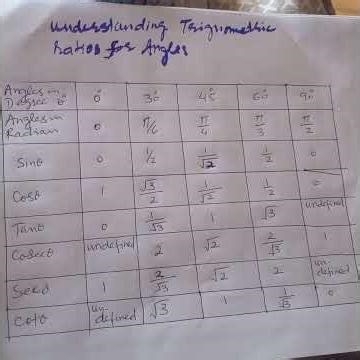 Understanding Trignometric
Ratios for Angles
Angles in Degree θ 0° 30° 45° 60° 90°
Angles in Radian 0 π/6 π/4 π/3 π/2
Sinθ 0 1/2 1/√2 1/2 0
Cosθ 1 √3/2 1/√2 1/2 0
Tanθ 0 1/√3 1 √3 undefined
Cosecθ undefined 2 √2 2/√3 1
Secθ 1 2/√3 √2 2 un-defined
Cotθ un-defined √3 1 1/√3 0